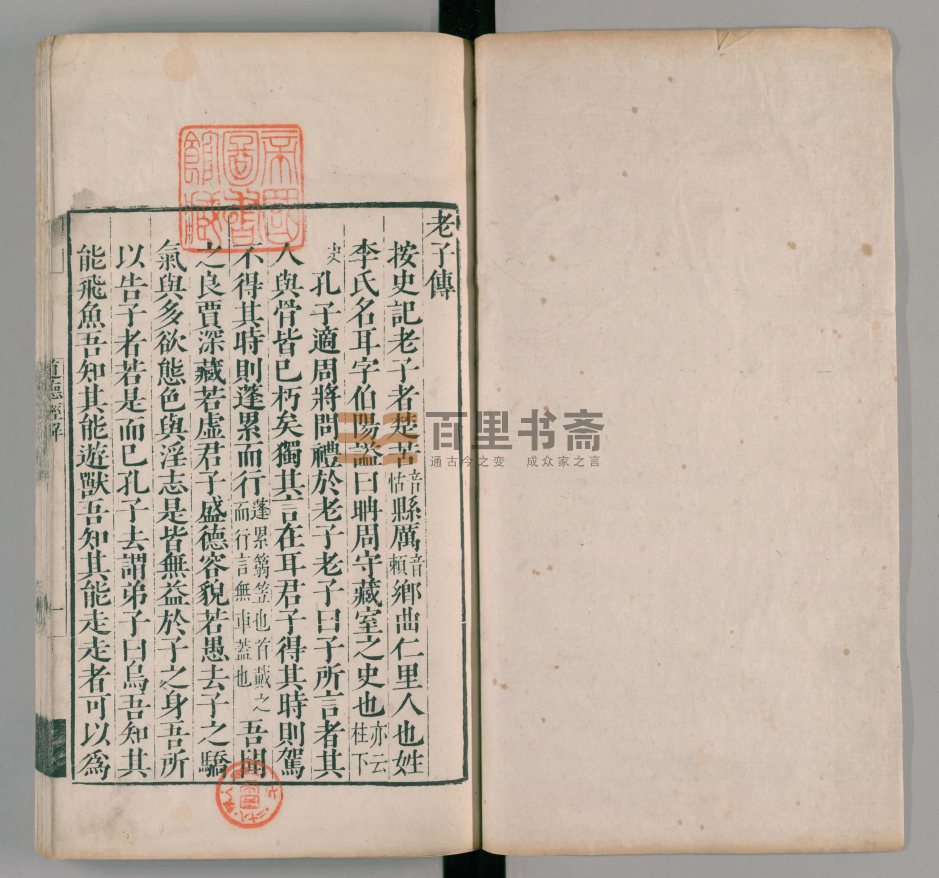 老子傳
按史記老子者楚苦音怙縣厲音賴鄉曲仁里人也姓
李氏名耳字伯陽謚曰聃周守藏室之史也亦云柱下
史孔子適周將問禮於老子老子曰子所言者其
人與骨皆已朽矣獨其言在耳君子得其時則駕
不得其時則蓬累而行蓬累篛笠也首戴之而行言無車蓋也吾聞
之良賈深藏若虛君子盛德容貌若愚去子之驕
氣與多欲態色與淫志是皆無益於子之身吾所
以告子者若是而已孔子去謂弟子曰鳥吾知其
能飛魚吾知其能遊獸吾知其能走走者可以為
道德經解
一
帝國
圖書
館藏
百里书斋
通古今之变 成众家之言